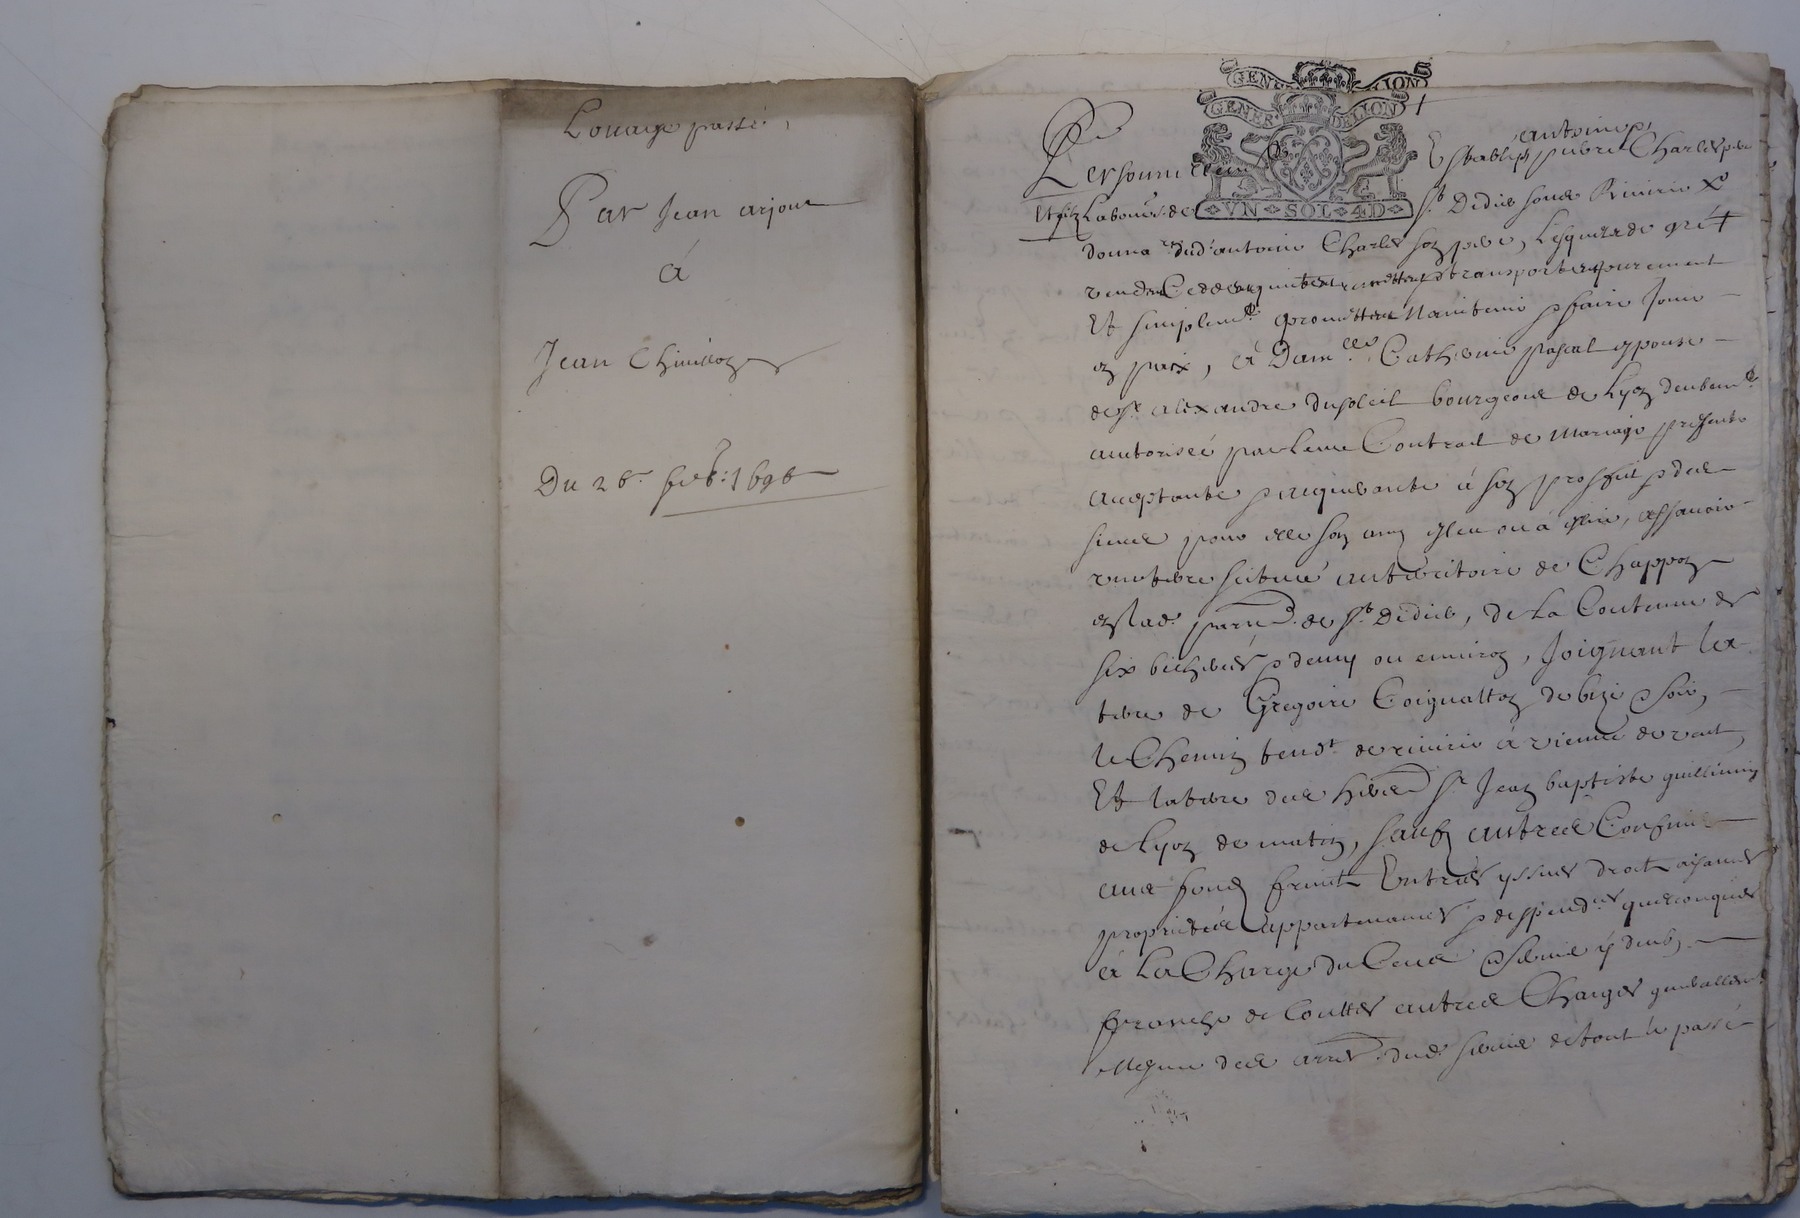 Louage passé
Par Jean arjour
à
Jean Chinilloz
Du 26e febr: 1696
GENER DELION
GENER DELION
VN SOL 4D
Personnellem Establys antoine Charles pere
Et filz Labour de St Didier soubz Rivirie
donna re dud antoine Charles son pere, Lesquelz de gré
vendent Ceddent quittent remettent & transportent purement
Et simplemt promettent Maintenir & faire Jouir
en paix, à Damlle Catherine pascal espouse
de Sr alexandre dusoleil bourgeois de Lyon deubemt
authorisée par leur Contract de Mariage presente
acceptante & acquerante à son proffit & des
siens pour elle son amy esleu ou à eslire, assavoir
une terre scituée au territoire de Chappon
en lad. parre de St Didier, de La Contenue de
six bicherées & demy ou environ, Joignant la
terre de Gregoire Coignatton de bize & soir,
le Chemin tendt de rivirie à vienne de vent
Et la terre des hers Sr Jean baptiste guillimin
de Lyon de matin, sauf autres Confins
avec fondz fruictz Entrées yssues droitz aisances
proprietés appartenances & despendces quelconques
à La Charge du Cens & servis y deubz
franche de touttes autres Charges
Mesme des arrer dud servis de tout le passé